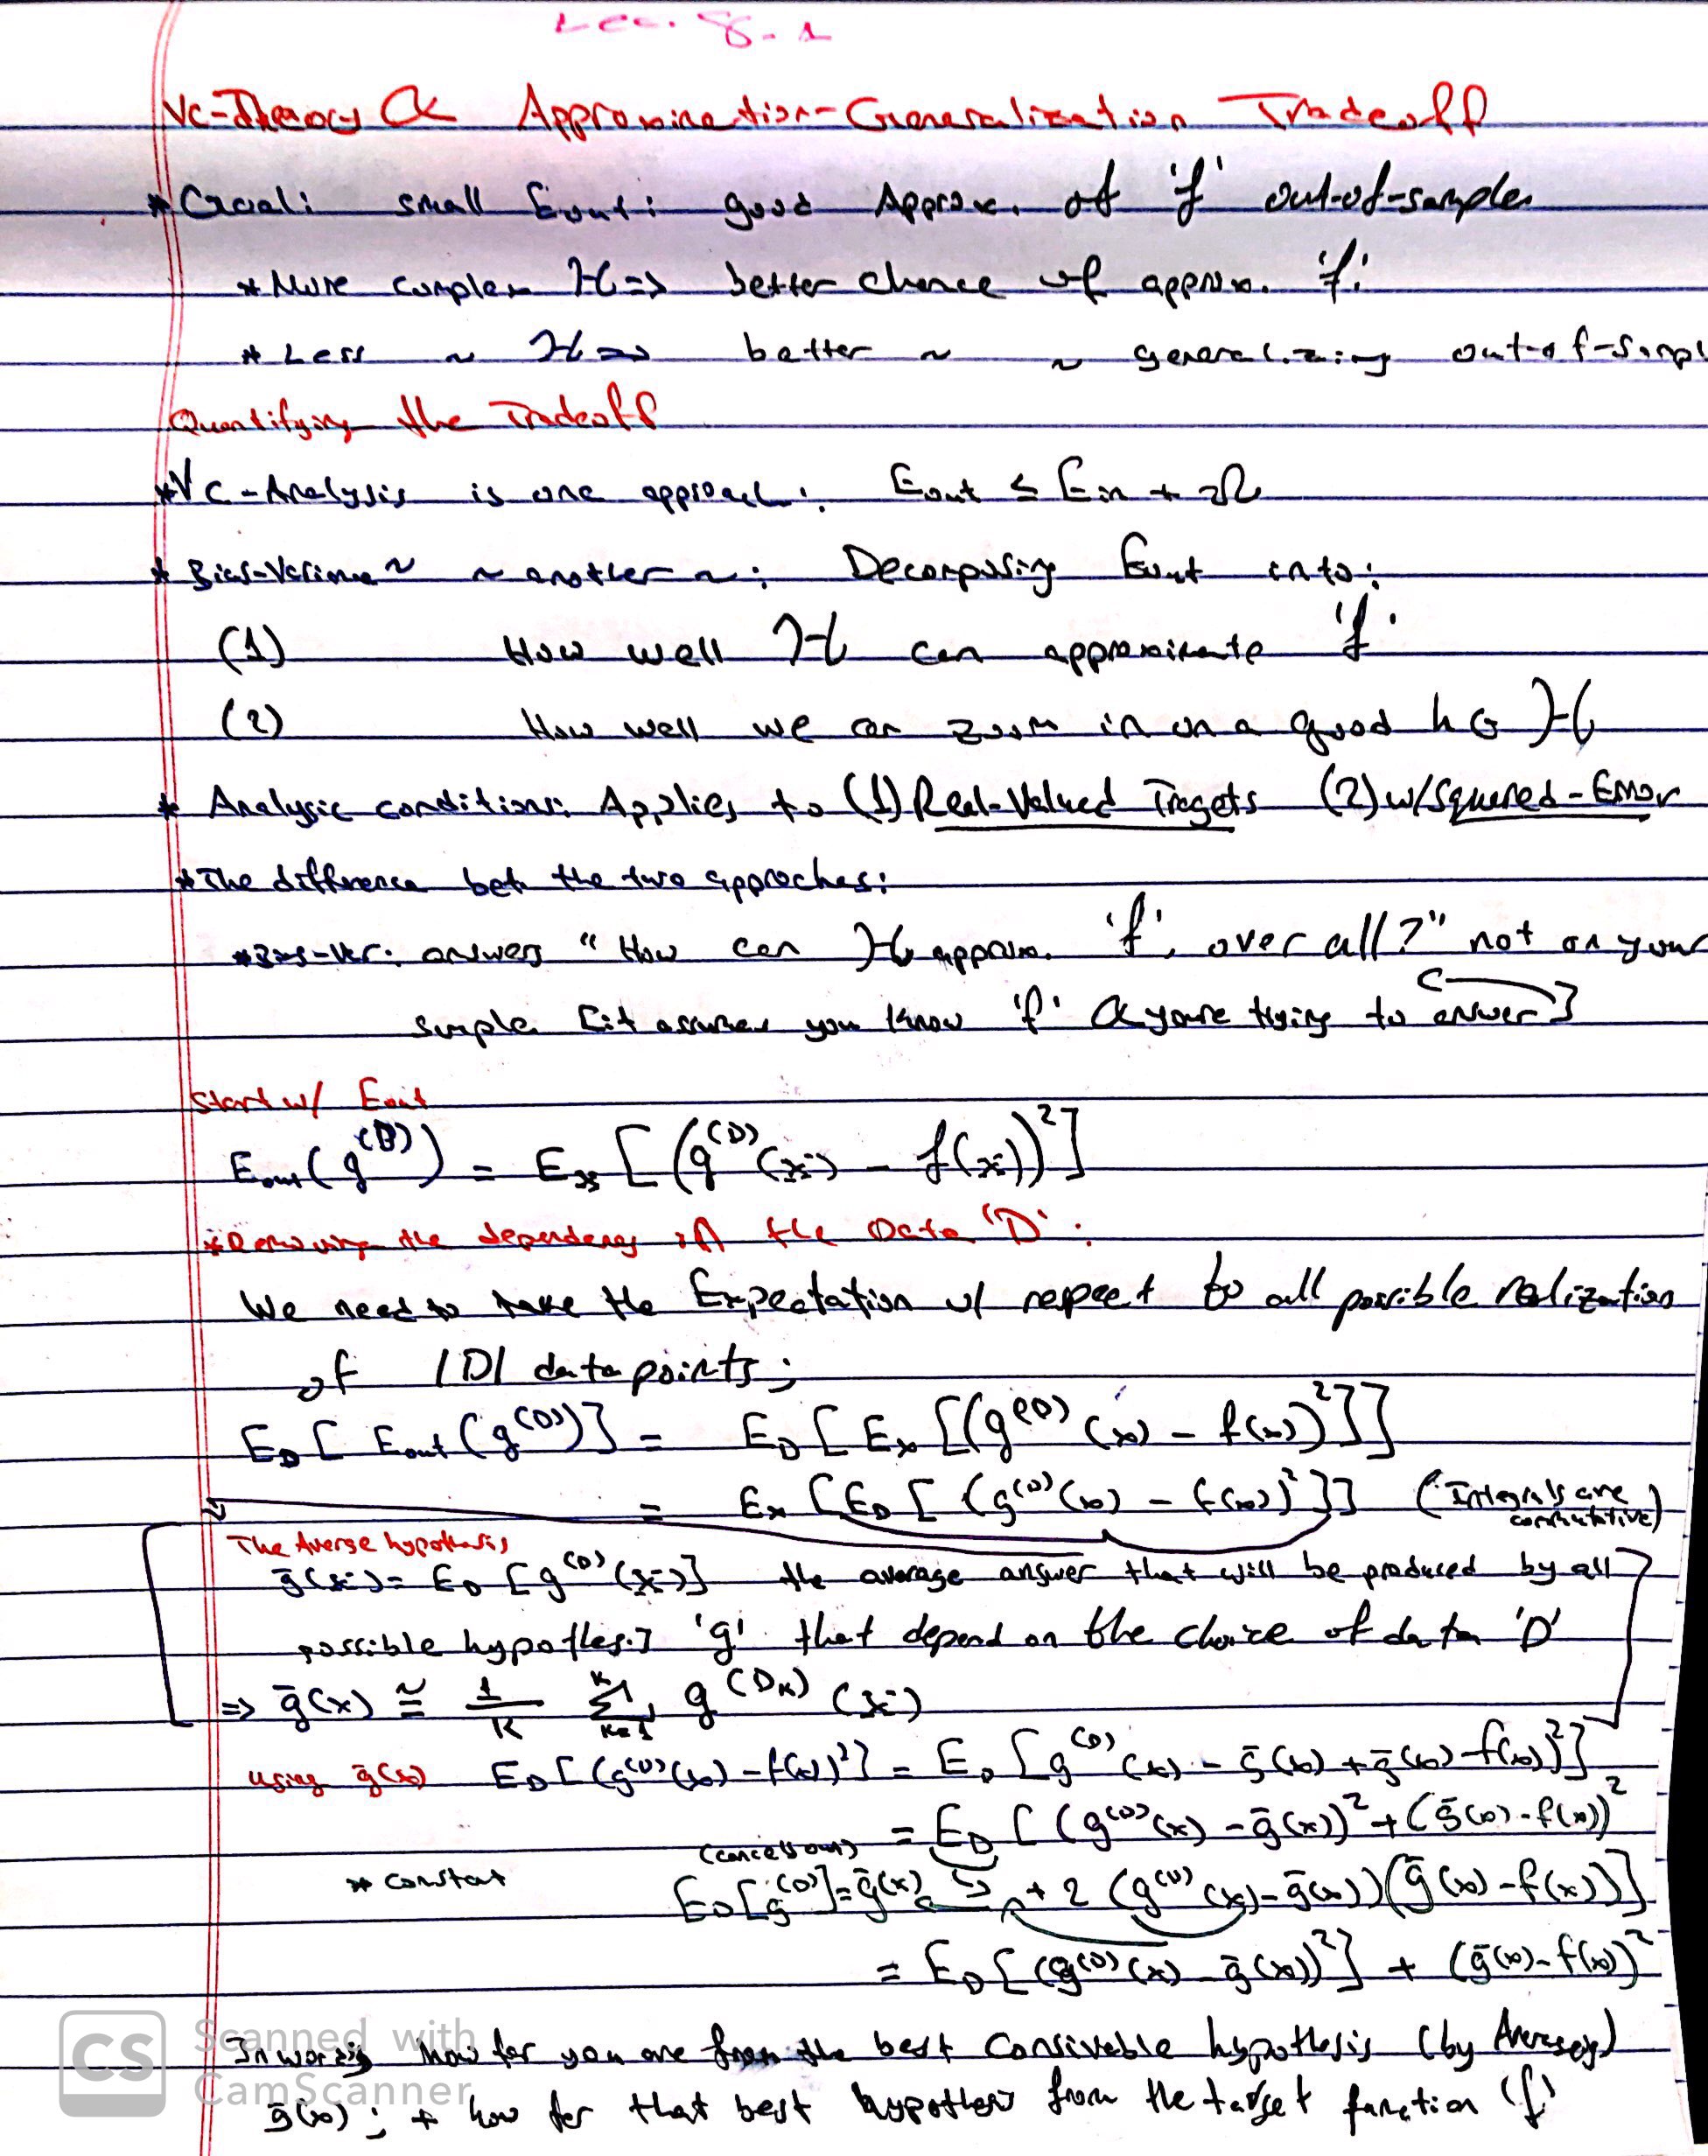 Lec. 8.1
VC-Theory & Approximation-Generalization Tradeoff
* Goal: small Eout: good Approx. of 'f' out-of-sample
* More complex H => better chance of approx. 'f'
* Less ~ H => better ~ ~ generalizing out-of-sampl
Quantifying the Tradeoff
* VC-Analysis is one approach: Eout ≤ Ein + Ω
* Bias-Variance ~ ~ another ~: Decomposing Eout into:
(1) How well H can approximate 'f'
(2) How well we can zoom in on a good h ∈ H
* Analysis conditions: Applies to (1) Real-Valued Tragets (2) w/ Squared-Error
* The difference bet the two approches:
* Bias-Var: answers "How can H approx. 'f' over all?" not on your
sample [it assumes you know 'f' & youre trying to answer]
Start w/ Eout
Eout(g^(D)) = Ex[(g^(D)(x) - f(x))²]
* Removing the dependency on the Data 'D':
We need to take the Expectation w/ respect to all possible realization
of |D| data points;
E_D[Eout(g^(D))] = E_D[Ex[(g^(D)(x) - f(x))²]]
= Ex[E_D[(g^(D)(x) - f(x))²]] (Integrals are commutative)
The Averge hypothesis
ḡ(x) = E_D[g^(D)(x)] the average answer that will be produced by all
possible hypothesis 'g' that depend on the choice of data 'D'
=> ḡ(x) ≅ 1/K Σ_{k=1}^{K} g^(Dk)(x)
using ḡ(x) E_D[(g^(D)(x) - f(x))²] = E_D[g^(D)(x) - ḡ(x) + ḡ(x) - f(x))²]
= E_D[(g^(D)(x) - ḡ(x))² + (ḡ(x) - f(x))²
(cancels out)
* constant E_D[g^(D)] = ḡ(x) + 2 (g^(D)(x) - ḡ(x))(ḡ(x) - f(x))]
= E_D[(g^(D)(x) - ḡ(x))²] + (ḡ(x) - f(x))²
how far you are from the best Consivable hypothesis (by Averaging)
ḡ(x); + how far that best hypothesis from the target function 'f'
CS Scanned with
CamScanner